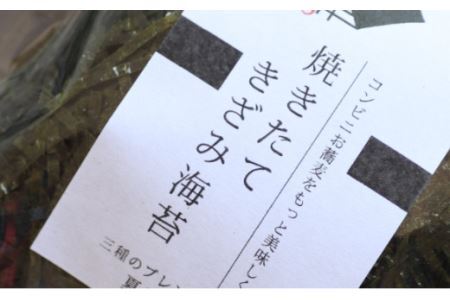 コンビニお蕎麦をもっと美味しく
焼きたて
きざみ海苔
三種のブレン
夏